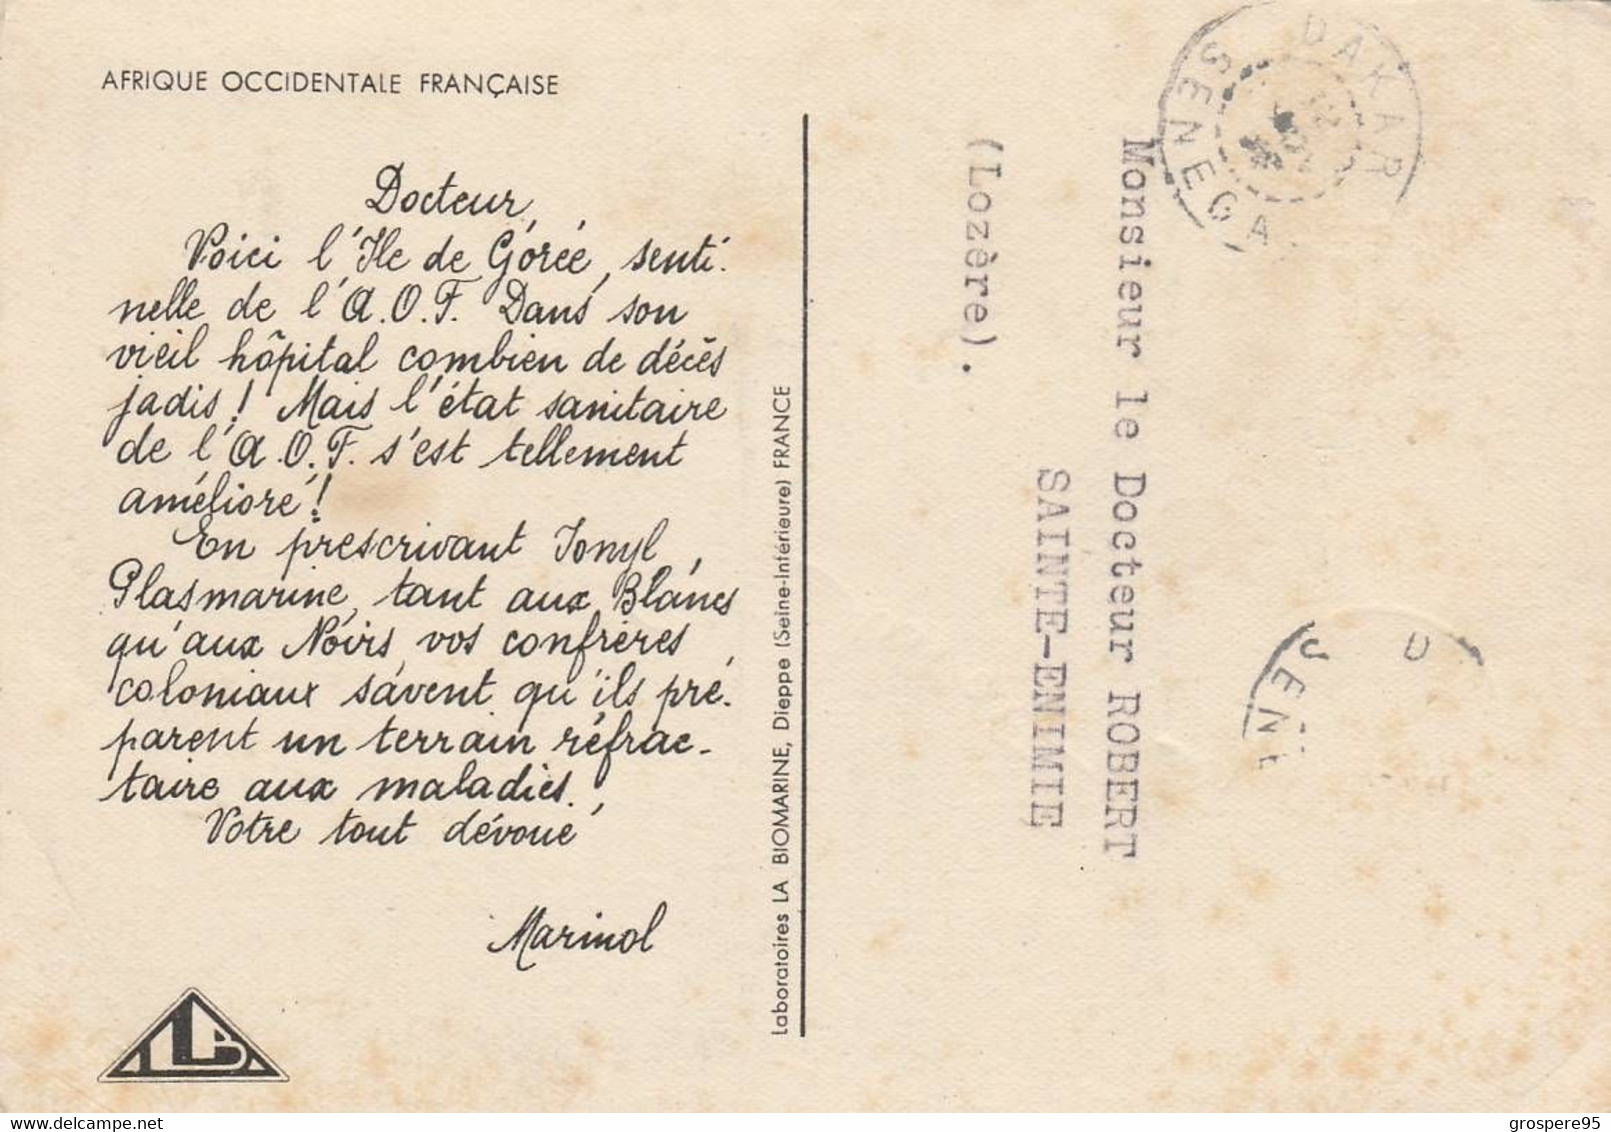 AFRIQUE OCCIDENTALE FRANÇAISE
Docteur,
Voici l'Ile de Gorée, senti-
nelle de l'A.O.F. Dans son
vieil hôpital combien de décès
jadis! Mais l'état sanitaire
de l'A.O.F. s'est tellement
amélioré!
En prescrivant Ionyl,
Plasmarine, tant aux Blancs
qu'aux Noirs, vos confrères
coloniaux savent qu'ils pré-
parent un terrain réfrac-
taire aux maladies.
Votre tout dévoué
Marinol
LB
Laboratoires LA BIOMARINE, Dieppe (Seine-Inférieure) FRANCE
Monsieur le Docteur ROBERT
SAINTE-ENIMIE
(Lozère).
DAKAR
SENEGA
D
SEN
delcampe.net
grospere95